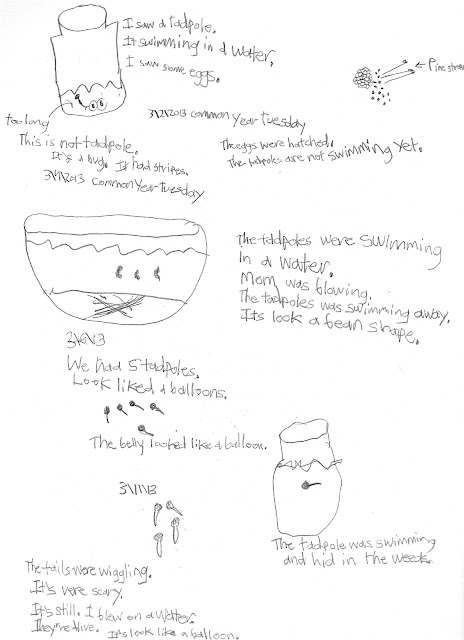 I saw a tadpole.
It swimming in a water.
I saw some eggs.
← Pine straw
too long
3\12\2013 common Year Tuesday
This is not tadpole.
It's a bug. It had stripes.
3\12\2013 common Year Tuesday
The eggs were hatched.
The tadpoles are not swimming yet.
The tadpoles were swimming
in a water.
Mom was blowing.
The tadpoles was swimming away.
Its look a bean shape.
3\6\13
We had 5 tadpoles.
Look liked a balloons.
The belly looked like a balloon.
3\11\13
The tadpole was swimming
and hid in the weeds.
The tails were wiggling.
It's vere scary.
It's still. I blew on a water.
They're alive. It's look like a balloon.